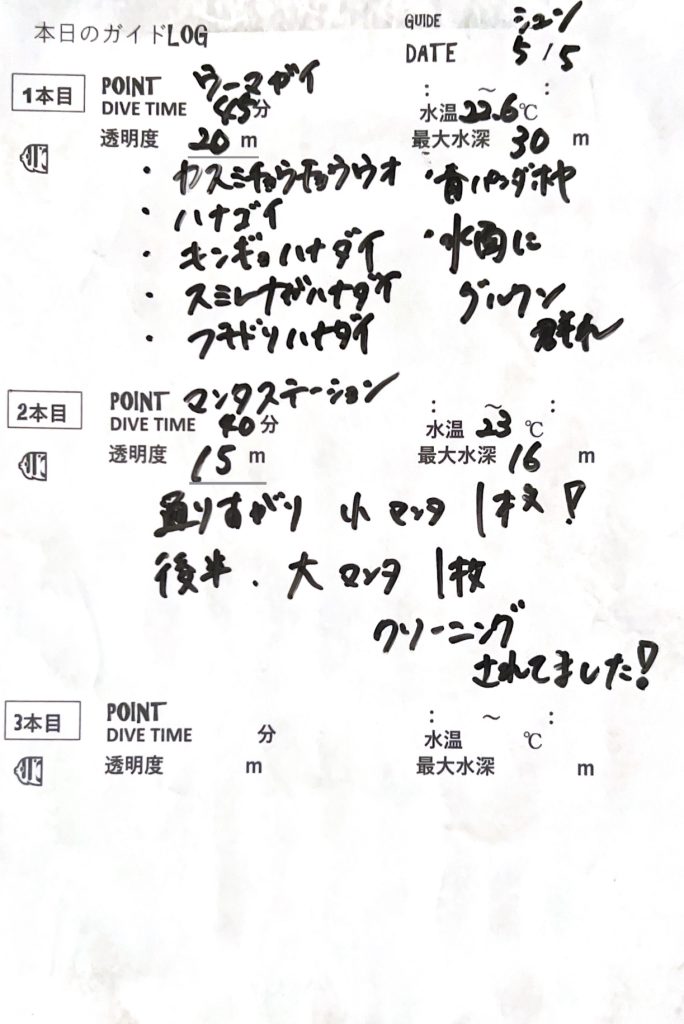 本日のガイドLOG
GUIDE シュン
DATE 5/5
1本目
POINT ウーマガイ
DIVE TIME 45分
: ～ :
水温 22.6℃
透明度 20 m
最大水深 30 m
・カスミチョウチョウウオ
・ハナゴイ
・キンギョハナダイ
・スミレナガハナダイ
・フチドリハナダイ
・青パンダホヤ
・水面に
グルクン
群れ
2本目
POINT マンタステーション
DIVE TIME 40分
: ～ :
水温 23 ℃
透明度 15 m
最大水深 16 m
通りすがり 小マンタ 1枚!
後半、大マンタ 1枚
クリーニング
されてました!
3本目
POINT
DIVE TIME 分
: ～ :
水温 ℃
透明度 m
最大水深 m